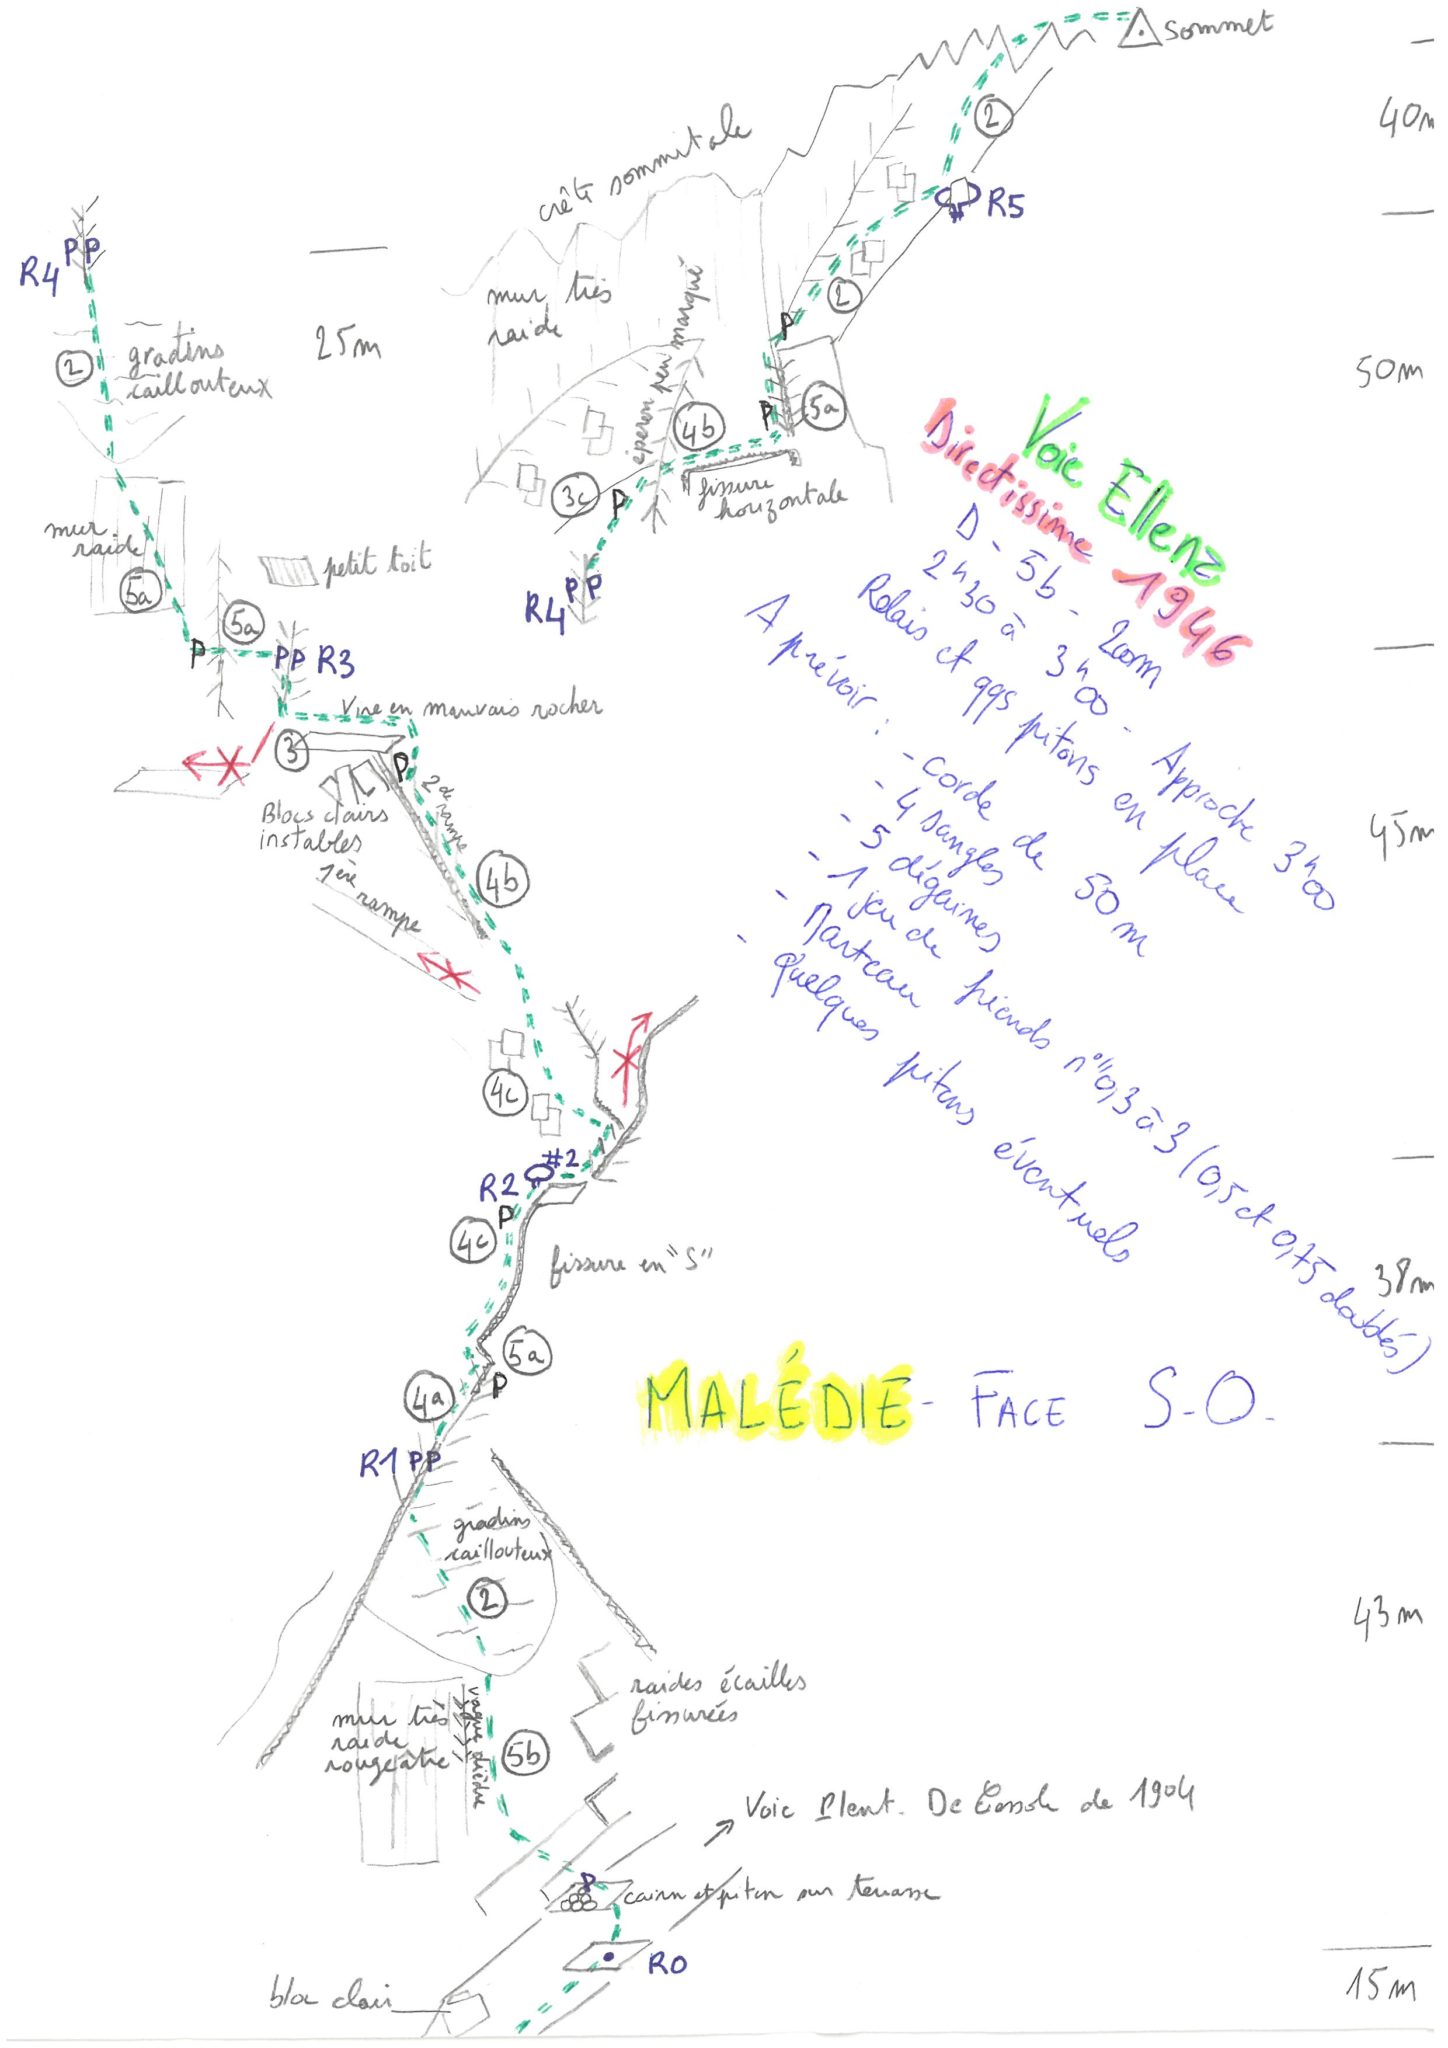 sommet
40m
crête sommitale
2
R5
R4 PP
mur très
raide
éperon peu marqué
2
25m
P
2
gradins
caillouteux
50m
P
5a
4b
3c
P
fissure
horizontale
mur
raide
petit toit
PP
R4
5a
5a
P
PP R3
Voie Ellena
Directissime 1946
D - 5b - 200m
2h30 à 3h00 - Approche 3h00
Relais et qqs pitons en place
A prévoir : - corde de 50m
- 4 sangles
- 5 dégaines
- 1 jeu de friends n°"0,3 à 3 (0,5 et 0,75 doublés)
- Marteau
- Quelques pitons éventuels
Vire en mauvais rocher
3
P
2de rampe
Blocs clairs
instables
45m
1ère rampe
4b
4c
#2
R2
P
4c
fissure en "S"
38m
5a
P
4a
MALÉDIE - FACE S-O-
R1 PP
gradins
caillouteux
2
43m
raides écailles
fissurées
mur très
raide
rougeâtre
vague dièdre
5b
Voie De Cessole de 1904
cairn et piton sur terrasse
R0
15m
bloc clair